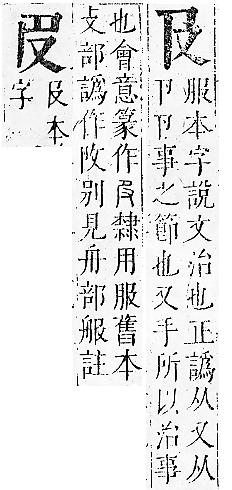 𠬝
服本字說文治也正譌从又从
卩卩事之節也又手所以治事
也會意篆作𠬝隸用服舊本
攴部譌作别見舟部服註
𠬝本
字